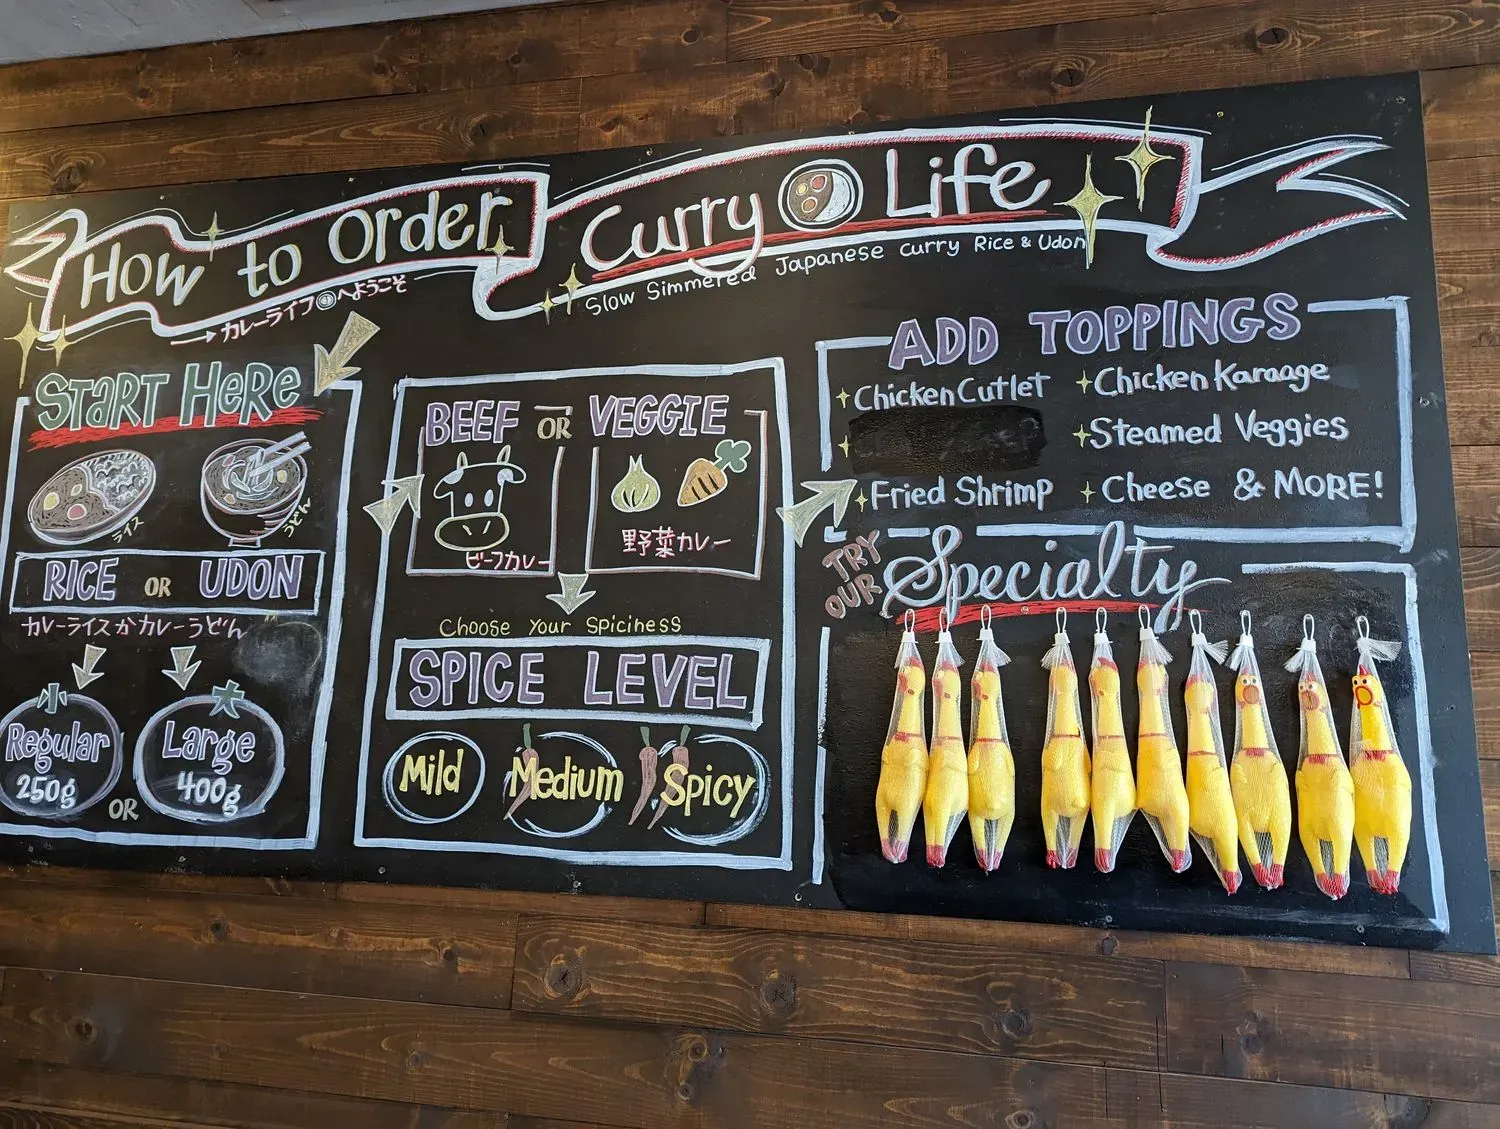 How to Order
Curry Life
Slow Simmered Japanese Curry Rice & Udon
カレーライフへようこそ
START HERE
ライス
うどん
RICE OR UDON
カレーライスかカレーうどん
小
Regular
250g
OR
大
Large
400g
BEEF OR VEGGIE
ビーフカレー
野菜カレー
Choose Your Spiciness
SPICE LEVEL
Mild
Medium
Spicy
ADD TOPPINGS
Chicken Cutlet
Chicken Karaage
Steamed Veggies
Fried Shrimp
Cheese & MORE!
TRY
OUR
Specialty